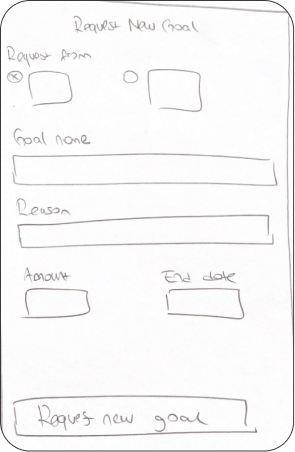 Request New Goal
Request from
Goal name
Reason
Amount
End date
Request new goal